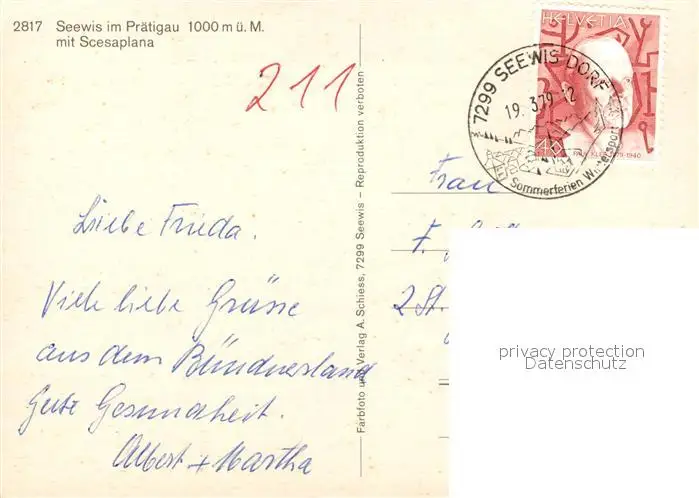 2817 Seewis im Prätigau 1000 m ü. M.
mit Scesaplana
211
Liebe Frieda.
Viele liebe Grüsse
aus dem Bündnerland
Gute Gesundheit.
Albert + Martha
Farbfoto und Verlag A. Schiess, 7299 Seewis – Reproduktion verboten
HELVETIA
40
PAUL KLEE 1879-1940
7299 SEEWIS DORF
19.3.79-12
Sommerferien Wintersport
Frau
F.
2 St.
privacy protection
Datenschutz